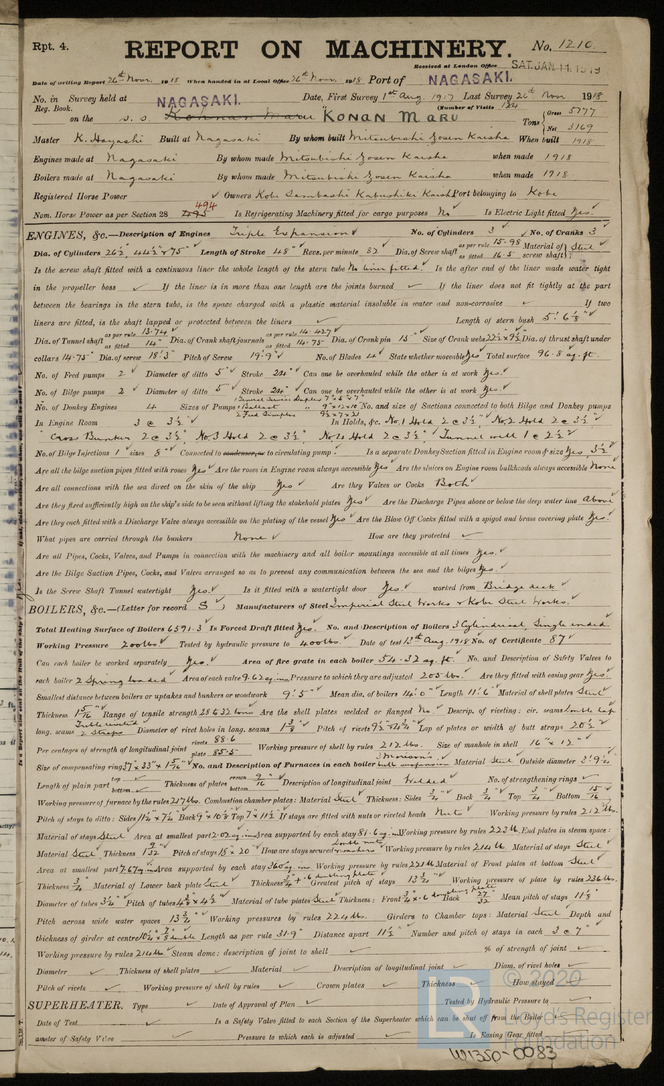 Rpt. 4.
REPORT ON MACHINERY.
No. 1210.
Received at London Office SAT. JAN 11. 1919
Date of writing Report 26th Novr. 1918 When handed in at Local Office 26th Novr. 1918 Port of NAGASAKI.
No. in Survey held at NAGASAKI. Date, First Survey 1st Aug. 1917 Last Survey 26th Nov 1918
Reg. Book. (Number of Visits 124)
on the S. S. Konnan Maru "KONAN MARU Tons { Gross 5777 Net 3169
Master K. Hayashi Built at Nagasaki By whom built Mitsubishi Zosen Kaisha When built 1918
Engines made at Nagasaki By whom made Mitsubishi Zosen Kaisha when made 1918
Boilers made at Nagasaki By whom made Mitsubishi Zosen Kaisha when made 1918
Registered Horse Power ✓ Owners Kobe Sambashi Kabushiki Kaisha Port belonging to Kobe
Nom. Horse Power as per Section 28 494 Is Refrigerating Machinery fitted for cargo purposes No Is Electric Light fitted Yes.
ENGINES, &c.—Description of Engines Triple Expansion No. of Cylinders 3 No. of Cranks 3
Dia. of Cylinders 26½" 44½" & 75" Length of Stroke 48" Revs. per minute 82 Dia. of Screw shaft as per rule 15.98 as fitted 16.5 Material of screw shaft Steel
Is the screw shaft fitted with a continuous liner the whole length of the stern tube No liner fitted. Is the after end of the liner made water tight
in the propeller boss ✓ If the liner is in more than one length are the joints burned ✓ If the liner does not fit tightly at the part
between the bearings in the stern tube, is the space charged with a plastic material insoluble in water and non-corrosive ✓ If two
liners are fitted, is the shaft lapped or protected between the liners ✓ Length of stern bush 5'. 6⅝"
Dia. of Tunnel shaft as per rule 13.74 as fitted 14" Dia. of Crank shaft journals as per rule 14.427 as fitted 14.75 Dia. of Crank pin 15" Size of Crank webs 22½ x 9½ Dia. of thrust shaft under
collars 14.75" Dia. of screw 18'.3" Pitch of Screw 19'.9" No. of Blades 4 State whether moveable Yes Total surface 96.8 sq. ft.
No. of Feed pumps 2 Diameter of ditto 5" Stroke 24" Can one be overhauled while the other is at work Yes.
No. of Bilge pumps 2 Diameter of ditto 5" Stroke 24" Can one be overhauled while the other is at work Yes.
No. of Donkey Engines 4 Sizes of Pumps No. and size of Suctions connected to both Bilge and Donkey pumps
In Engine Room 3 @ 3½" In Holds, &c. No. 1 Hold 2 @ 3½" No. 2 Hold 2 @ 3½"
Cross Bunker 2 @ 3½" No. 3 Hold 2 @ 3½" No. 4 Hold 2 @ 3½" Tunnel well 1 @ 2½"
No. of Bilge Injections 1 sizes 8" Connected to condenser, or to circulating pump ✓ Is a separate Donkey Suction fitted in Engine room & size Yes, 3½"
Are all the bilge suction pipes fitted with roses Yes Are the roses in Engine room always accessible Yes Are the sluices on Engine room bulkheads always accessible None
Are all connections with the sea direct on the skin of the ship Yes Are they Valves or Cocks Both
Are they fixed sufficiently high on the ship's side to be seen without lifting the stokehold plates Yes Are the Discharge Pipes above or below the deep water line Above
Are they each fitted with a Discharge Valve always accessible on the plating of the vessel Yes Are the Blow Off Cocks fitted with a spigot and brass covering plate Yes
What pipes are carried through the bunkers None How are they protected ✓
Are all Pipes, Cocks, Valves, and Pumps in connection with the machinery and all boiler mountings accessible at all times Yes.
Are the Bilge Suction Pipes, Cocks, and Valves arranged so as to prevent any communication between the sea and the bilges Yes.
Is the Screw Shaft Tunnel watertight Yes. Is it fitted with a watertight door Yes. worked from Bridge deck
BOILERS, &c.—(Letter for record S) Manufacturers of Steel Imperial Steel Works & Kobe Steel Works.
Total Heating Surface of Boilers 6591.3 Is Forced Draft fitted Yes. No. and Description of Boilers 3 Cylindrical, Single ended.
Working Pressure 200 lbs Tested by hydraulic pressure to 400 lbs. Date of test 13th Aug. 1918 No. of Certificate 87
Can each boiler be worked separately Yes. Area of fire grate in each boiler 54.32 sq. ft. No. and Description of Safety Valves to
each boiler 2 Spring loaded Area of each valve 9.62 sq. ins Pressure to which they are adjusted 205 lbs. Are they fitted with easing gear Yes
Smallest distance between boilers or uptakes and bunkers or woodwork 9'.5" Mean dia. of boilers 14'.0" Length 11'.6" Material of shell plates Steel
Thickness 1 5/16 Range of tensile strength 28 to 32 tons Are the shell plates welded or flanged No Descrip. of riveting: cir. seams double lap
long. seams Treble riveted 2 Straps Diameter of rivet holes in long. seams 1⅜ Pitch of rivets Lap of plates or width of butt straps 20½"
Per centages of strength of longitudinal joint rivets 88.6 plate 85.5 Working pressure of shell by rules 212 lbs. Size of manhole in shell 16" x 12"
Size of compensating ring 37 x 33 x 1 5/16 No. and Description of Furnaces in each boiler 3 Morison's bulb suspension Material Steel Outside diameter 3'.9¾
Length of plain part top ✓ bottom ✓ Thickness of plates crown bottom 9/16 Description of longitudinal joint Welded No. of strengthening rings ✓
Working pressure of furnace by the rules 217 lbs. Combustion chamber plates: Material Steel Thickness: Sides ¾ Back ¾ Top ¾ Bottom 15/16
Pitch of stays to ditto: Sides 11½ x 7½ Back 9 x 10½ Top 7 x 11½ If stays are fitted with nuts or riveted heads Nuts Working pressure by rules 212 lbs.
Material of stays Steel Area at smallest part 2.03 sq. in Area supported by each stay 81.6 sq. in Working pressure by rules 223 lb. End plates in steam space:
Material Steel Thickness 1 9/32 Pitch of stays 18 x 20 How are stays secured double nuts & washers Working pressure by rules 214 lb. Material of stays Steel
Area at smallest part 7.69 sq. in Area supported by each stay 360 sq. in Working pressure by rules 221 lb Material of Front plates at bottom Steel
Thickness ¾ Material of Lower back plate Steel Thickness ¾ + .6 doubling plate Greatest pitch of stays 13¾ Working pressure of plate by rules 236 lbs.
Diameter of tubes 3¼ Pitch of tubes 4½ x 4½ Material of tube plates Steel Thickness: Front ¾ + .6 doubling plate Back 27/32 Mean pitch of stays 11⅝
Pitch across wide water spaces 13¾" Working pressures by rules 224 lbs. Girders to Chamber tops: Material Steel Depth and
thickness of girder at centre Length as per rule 31.9" Distance apart 11½" Number and pitch of stays in each 3 @ 7"
Working pressure by rules 214 lbs Steam dome: description of joint to shell ✓ % of strength of joint ✓
Diameter ✓ Thickness of shell plates ✓ Material ✓ Description of longitudinal joint ✓ Diam. of rivet holes ✓
Pitch of rivets ✓ Working pressure of shell by rules ✓ Crown plates ✓ Thickness ✓ How stayed ✓
SUPERHEATER. Type ✓ Date of Approval of Plan ✓ Tested by Hydraulic Pressure to ✓
Date of Test ✓ Is a Safety Valve fitted to each Section of the Superheater which can be shut off from the Boiler ✓
ameter of Safety Valve ✓ Pressure to which each is adjusted ✓ Is Easing Gear fitted
© 2020
Lloyd's Register
Foundation
W1350-0083